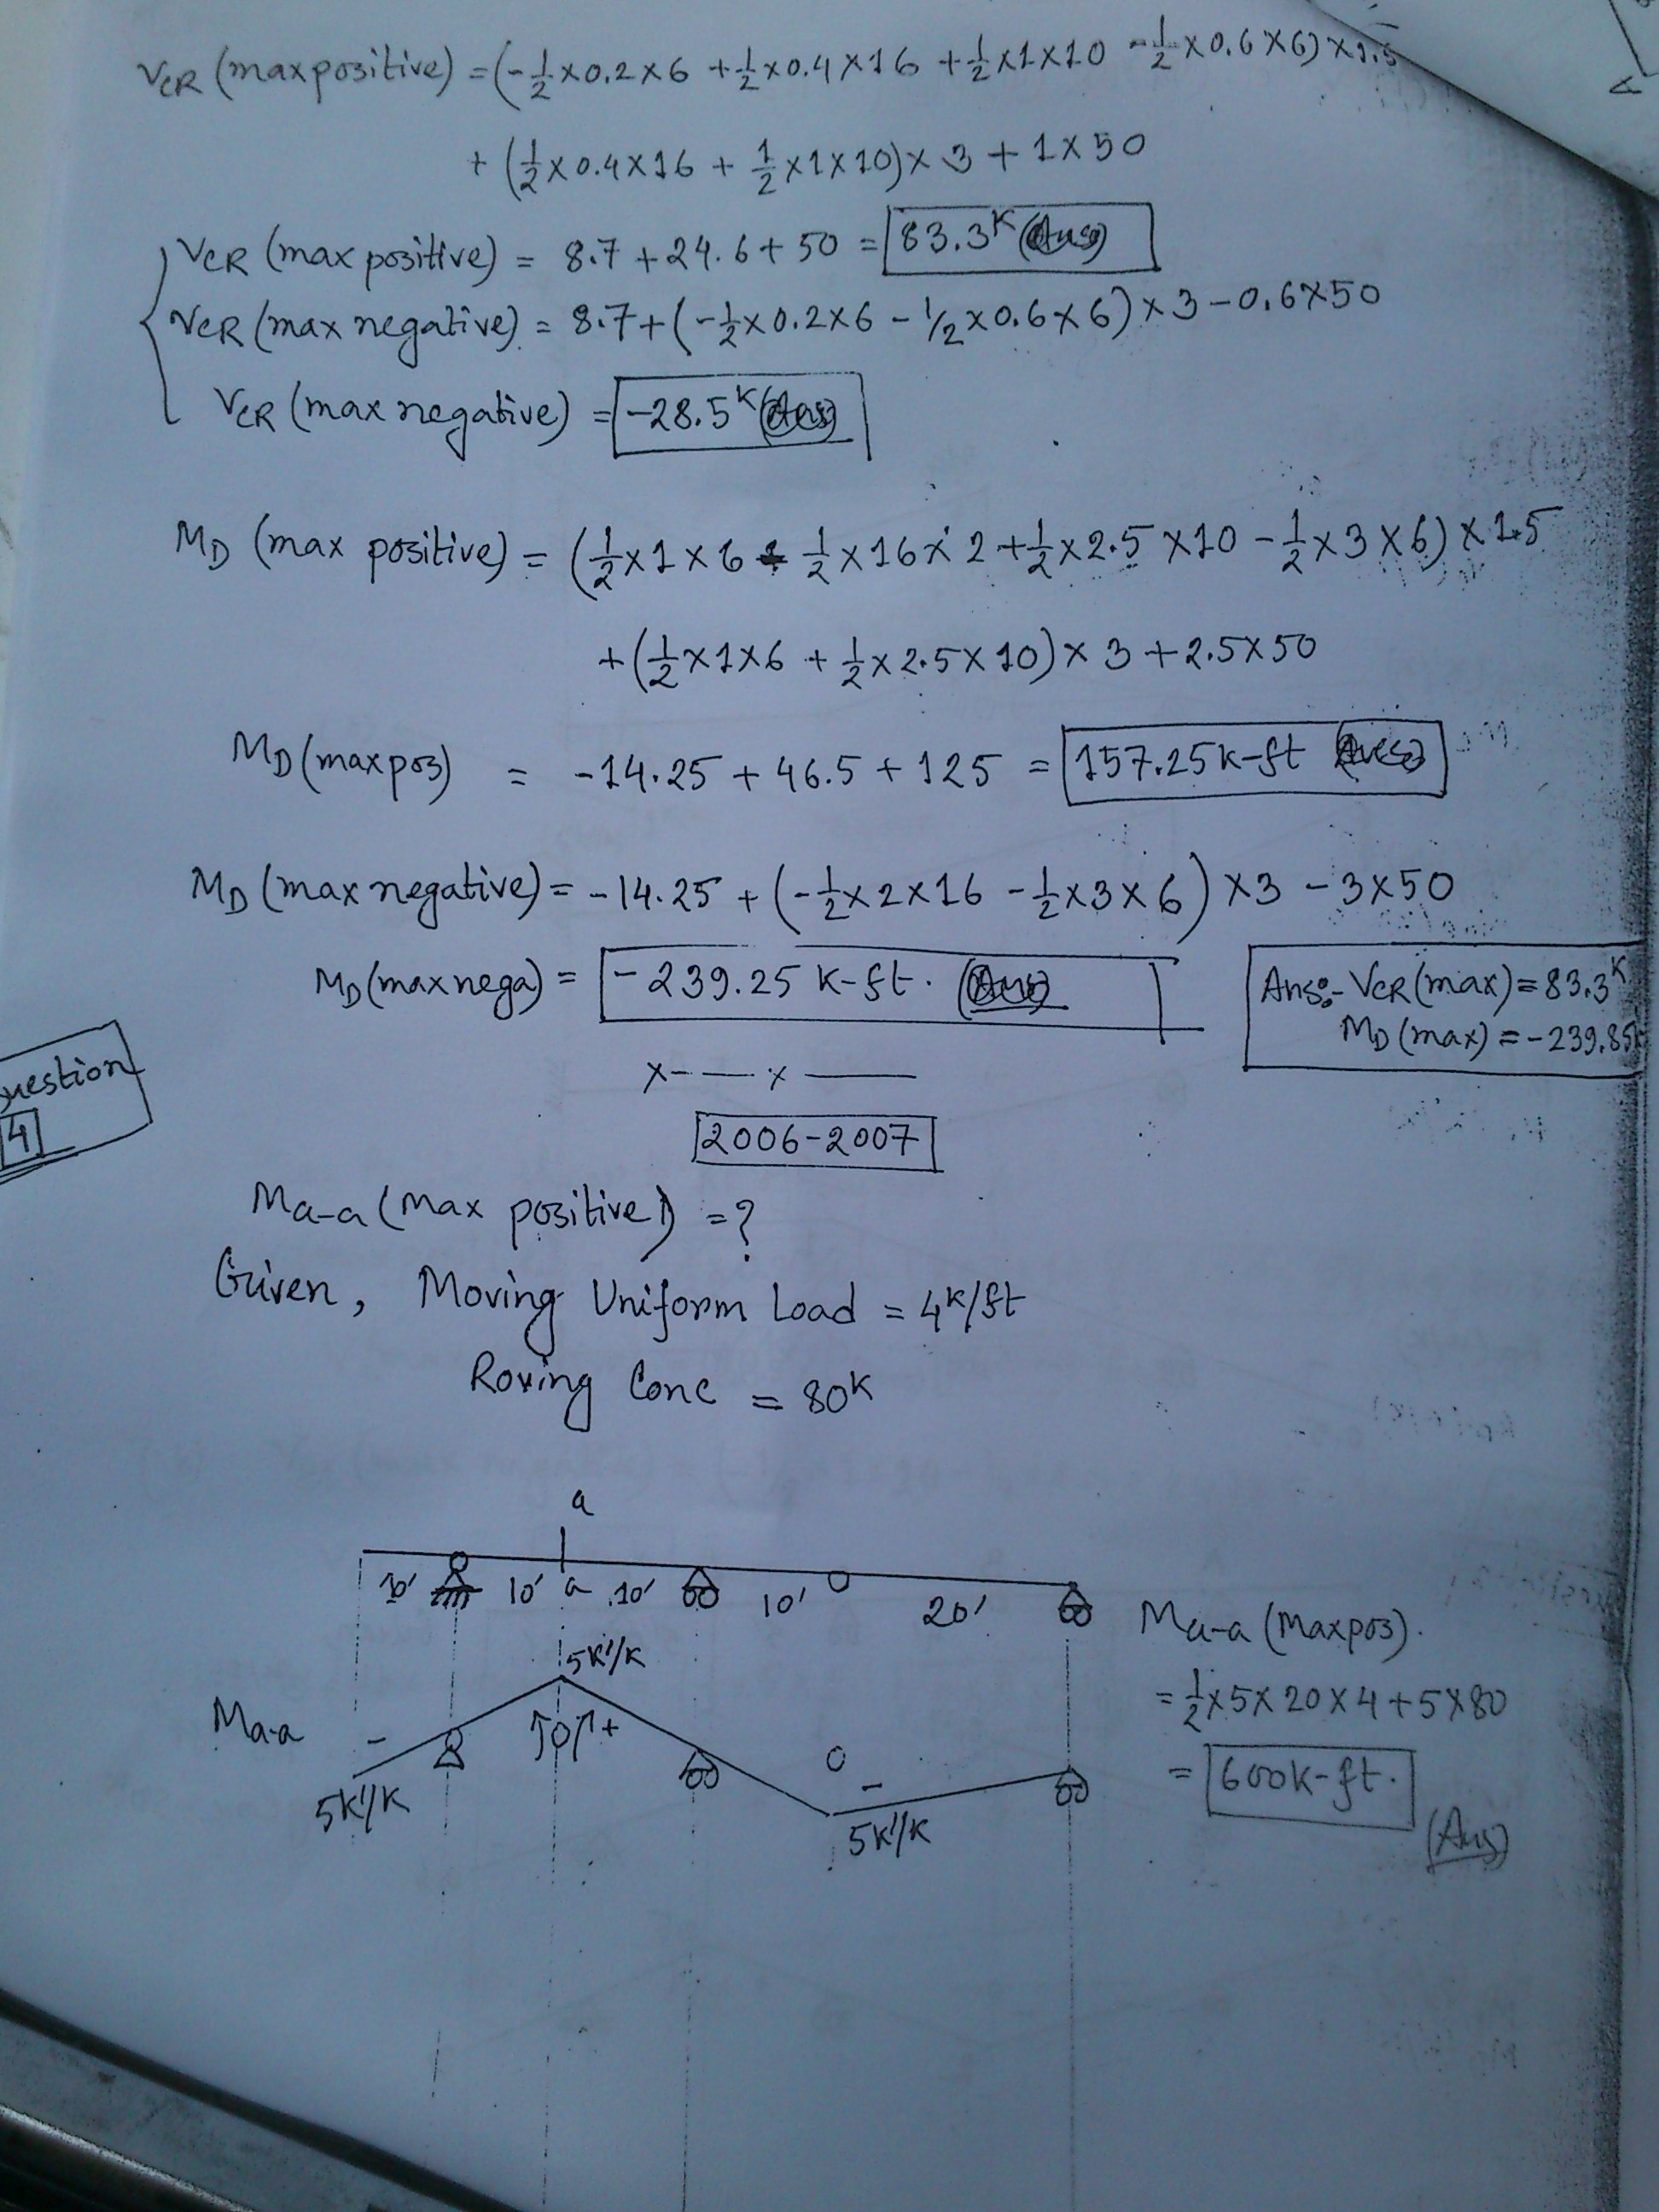 VCR (max positive) = (-½×0.2×6 +½×0.4×16 +½×1×10 -½×0.6×6)×1.5
+ (½×0.4×16 + ½×1×10)×3 + 1×50
VCR (max positive) = 8.7+24.6+50 = 83.3K (Ans)
VCR (max negative) = 8.7+(-½×0.2×6 - ½×0.6×6)×3-0.6×50
VCR (max negative) = -28.5K (Ans)
MD (max positive) = (½×1×6 - ½×16×2+½×2.5×10 -½×3×6)×1.5
+(½×1×6 + ½×2.5×10)×3+2.5×50
MD (max pos) = -14.25+46.5+125 = 157.25K-ft (Ans)
MD (max negative) = -14.25+(-½×2×16 -½×3×6)×3 -3×50
MD (max nega) = -239.25 K-ft. (Ans)
Ans:- VCR (max) = 83.3K
MD (max) = -239.85
x- — . x —
uestion
4
2006-2007
Ma-a (Max positive) = ?
Given, Moving Uniform Load = 4K/ft
Roving Conc = 80K
a
10' 10' a 10' 10' 20'
Ma-a (Max pos).
5K'/K
= ½×5×20×4+5×80
Ma-a - + 0 -
= 600K-ft.
5K'/K 5K'/K
(Ans)